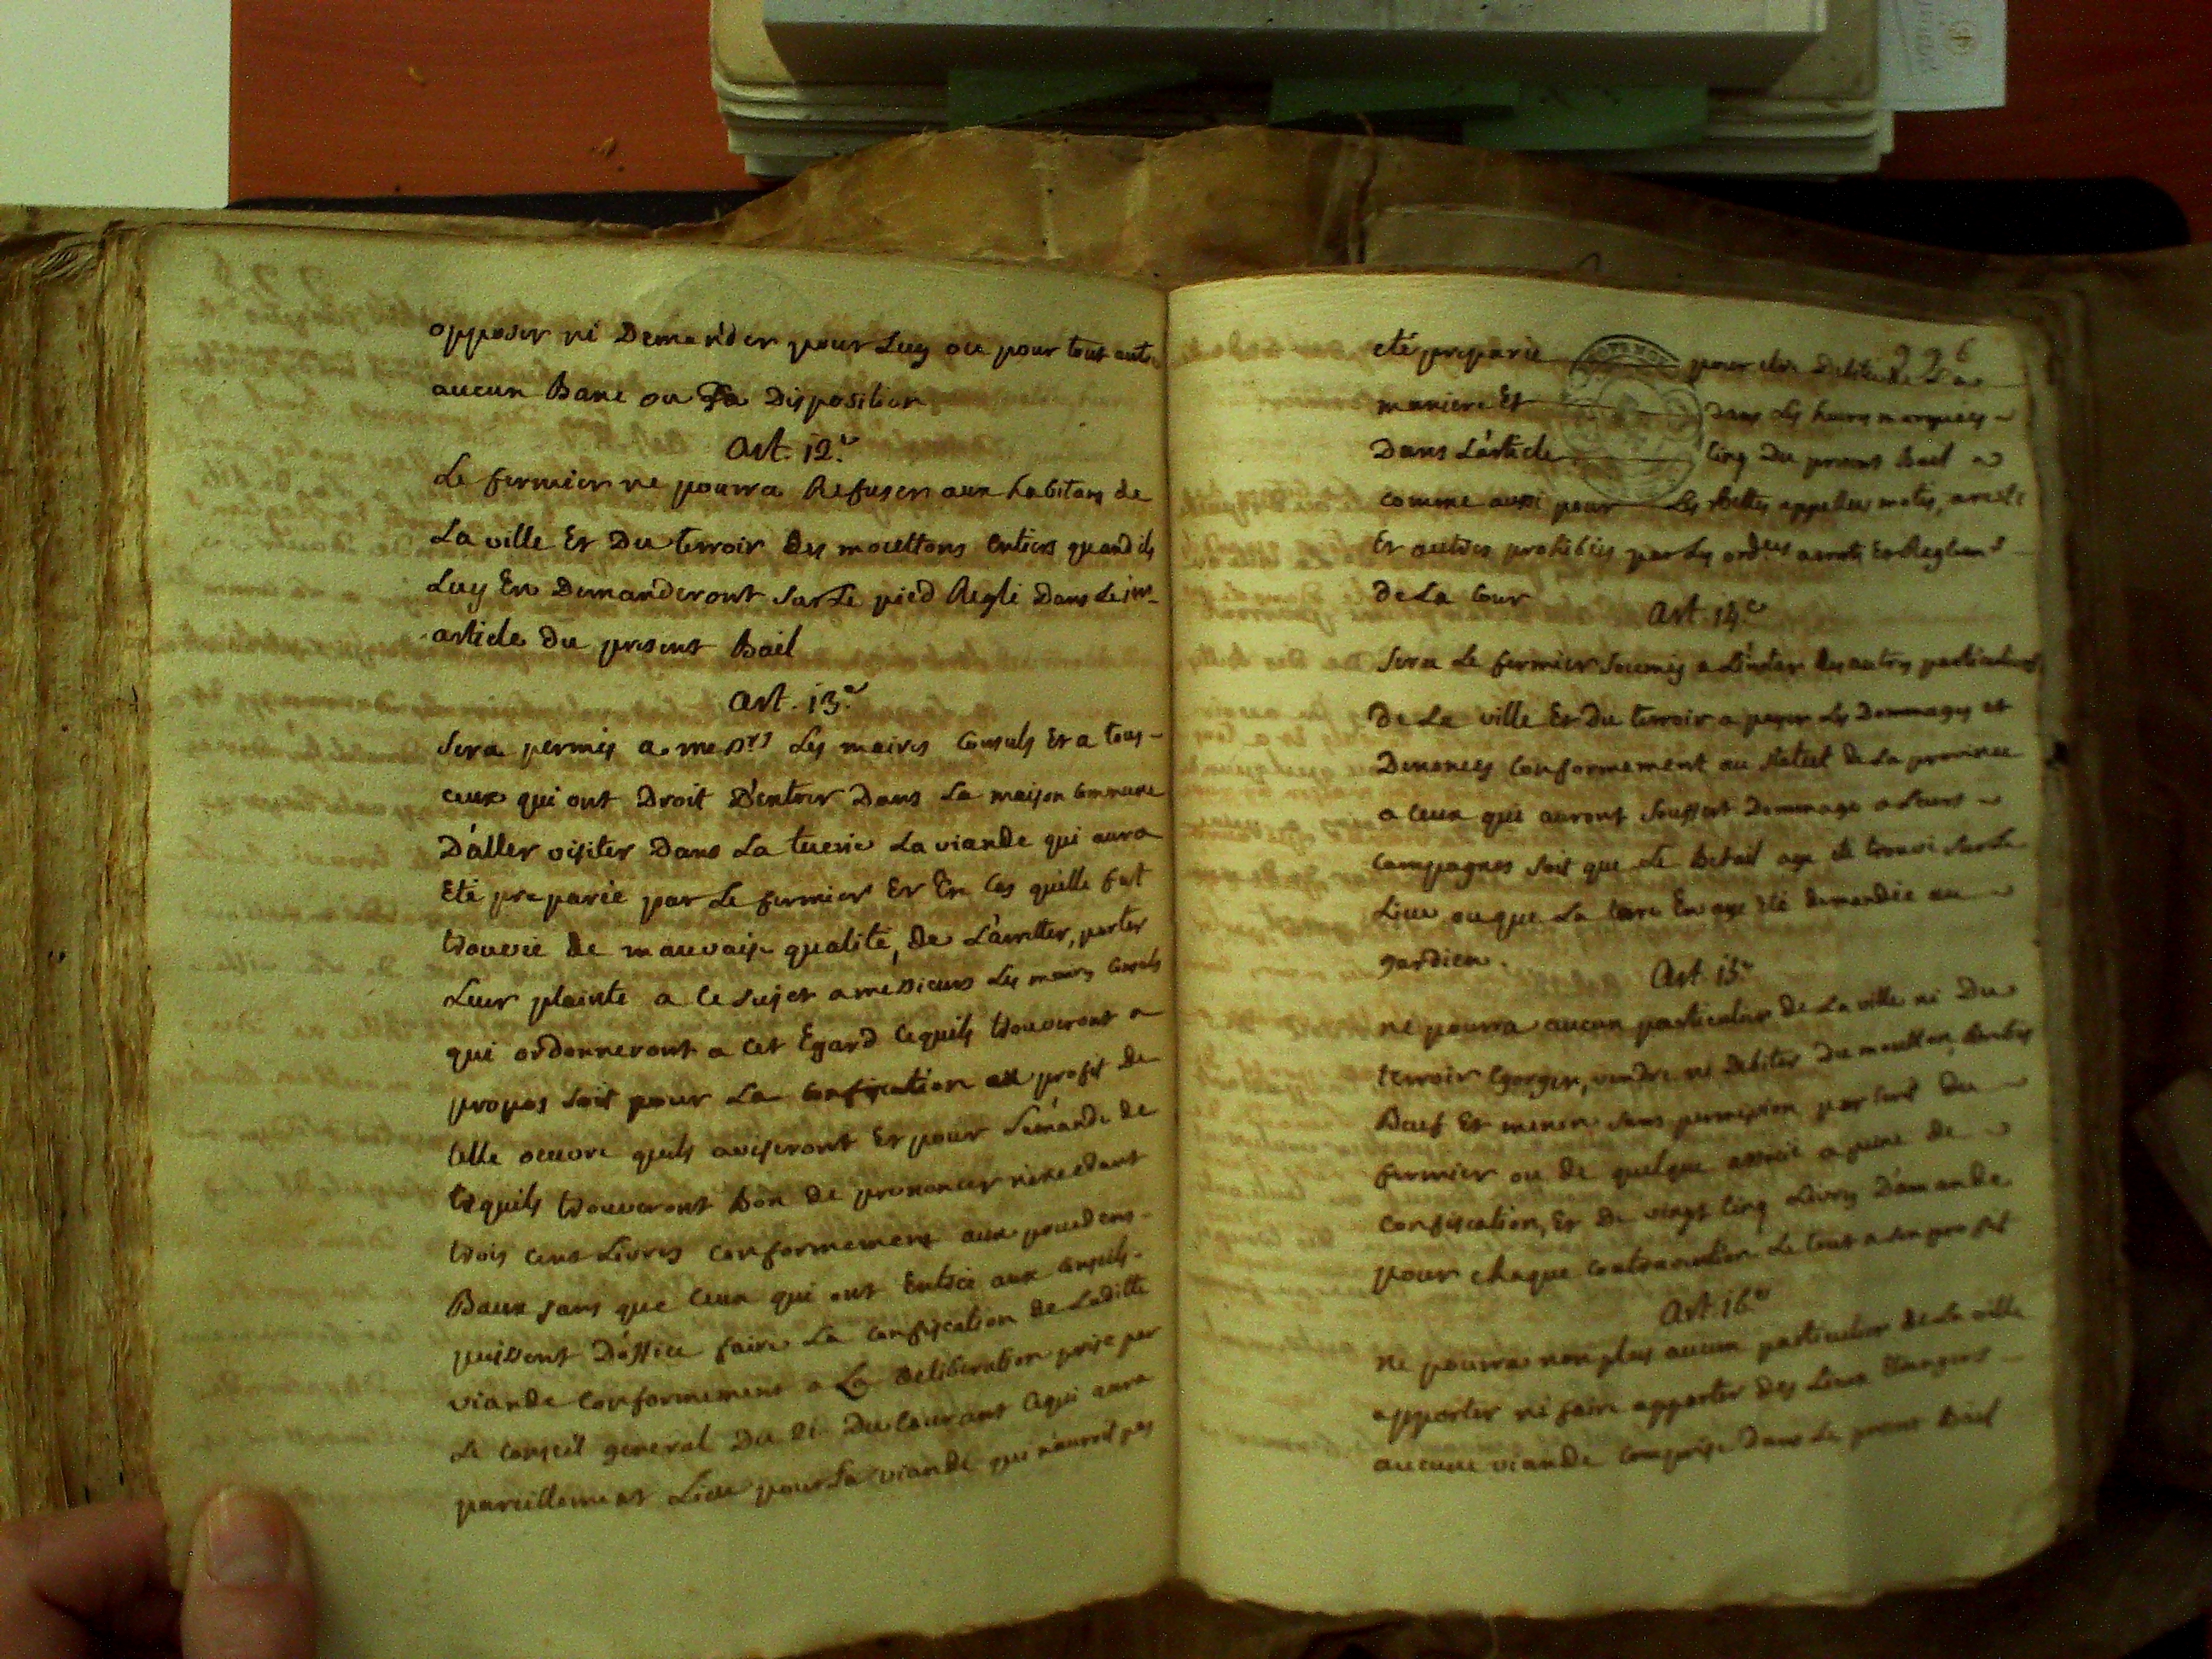 opposer ni Demander pour Luy ou pour tout autre
aucun Banc ou Sa Disposition
Art. 12.e
Le fermier ne pourra Refuser aux habitans de
La ville Et Du terroir des mouttons Entiers quand ils
Luy En Demanderont Sur Le pied Reglé Dans Le
article Du present Bail
Art. 13.e
Sera permis a messrs Les maires Consuls Et a tous
ceux qui ont Droit D'entrer Dans La maison Commune
D'aller visiter Dans La tuerie La viande qui aura
Eté preparée par Le fermier Et En Cas quelle fut
trouvée de mauvaise qualité, de L'arretter, porter
Leur plainte a Ce Sujet a messieurs Les maires Consuls
qui ordonneront a Cet Egard Cequils trouveront a
propos Soit pour La Confiscation au profit de
telle oeuvre quils aviseront Et pour L'émande de
Cequils trouveront Bon de prononcer n'excedant
trois Cens Livres Conformement aux precedens
Baux sans que Ceux qui ont Entrée aux Conseils
puissent D'office faire La Confiscation de Laditte
viande Conformement a La deliberation prise par
Le Conseil general Du 21 Du Courant Cequi aura
pareillement Lieu pour La viande qui n'auroit pas
226
eté preparée pour etre Debitée de La
maniere Et Dans Les heures marquées
Dans L'article Cinq Du present Bail
Comme aussi pour Les Bettes appellées
Et autres prohibées par Les ordces arrets Et Reglemts
de La Cour
Art. 14.e
Sera Le fermier Soumis a L'instar des autres particuliers
de La ville Et Du terroir a payer Les Dommages et
Denonces Conformement au Statut de La province
a Ceux qui auront Souffert Dommage a Leurs
Campagnes Soit que Le Betail aye eté trouvé Sur Le
Lieu ou que La tare En aye eté demandée au
gardien.
Art. 15.e
ne pourra aucun particulier de La ville ni Du
terroir Egorger, vendre ni Debiter Du moutton, Brebis
Boeuf Et menon Sans permission par Ecrit du
fermier ou de quelque associé a peine de
Confiscation, Et De vingt Cinq Livres D'amande
pour chaque Contravention Le tout a Son profit
Art. 16.e
ne pourra non plus aucun particulier de La ville
apporter ni faire apporter des Lieux Etrangers
aucune viande Comprise Dans Le present Bail